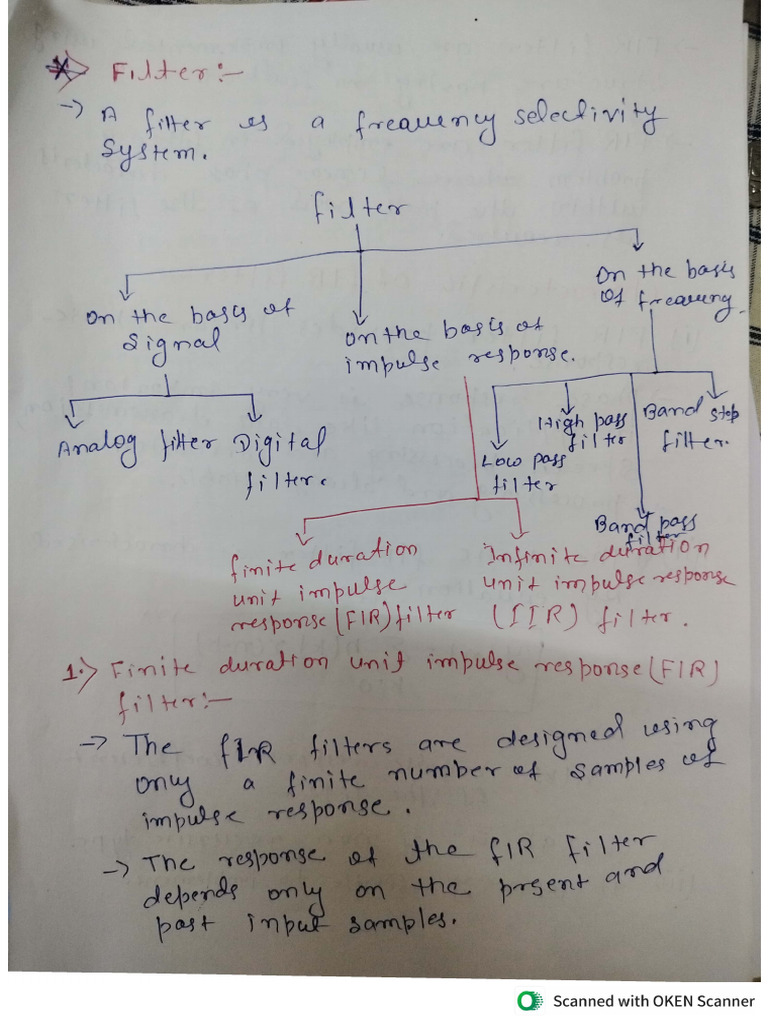 * Filter:-
-> A filter is a frequency selectivity
system.
filter
On the basis of
Signal
On the basis of
impulse response.
On the basis
of frequency.
Analog filter
Digital
filter.
Low pass
filter
High pass
filter
Band stop
filter.
Band pass
filter
finite duration
unit impulse
response (FIR) filter
Infinite duration
unit impulse response
(IIR) filter.
1.> Finite duration unit impulse response (FIR)
filter:-
-> The FIR filters are designed using
only a finite number of samples of
impulse response.
-> The response of the FIR filter
depends only on the present and
past input samples.
Scanned with OKEN Scanner